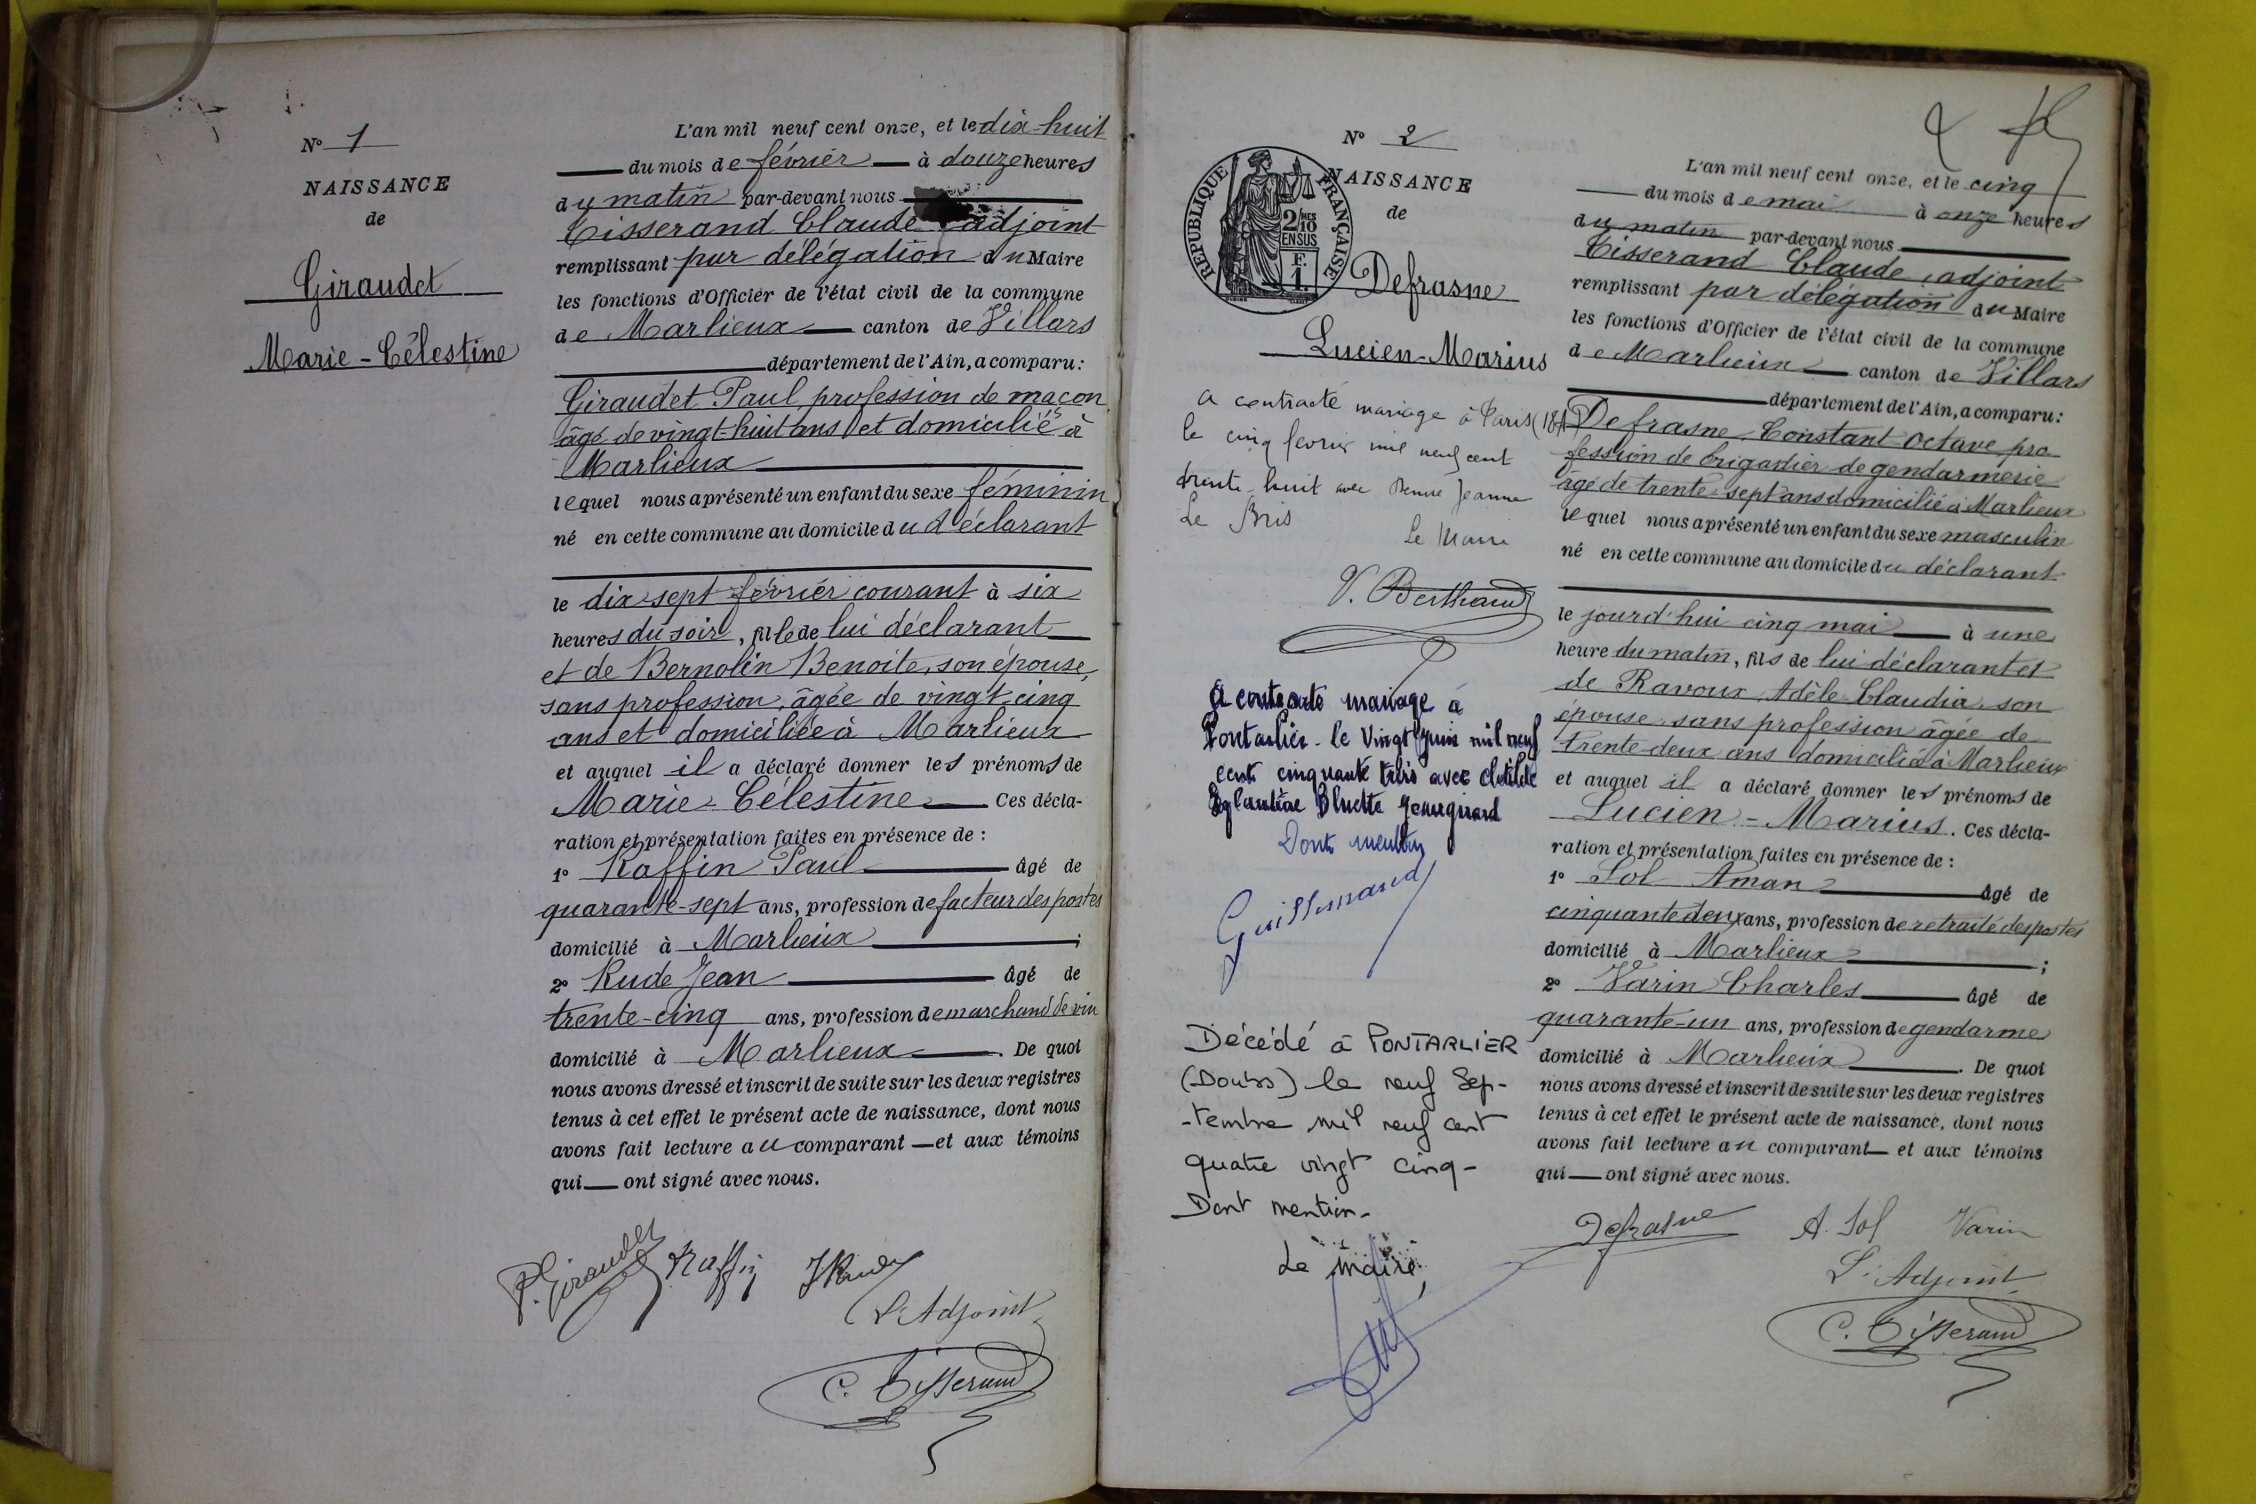 N° 1
NAISSANCE
de
Giraudet
Marie-Célestine
L'an mil neuf cent onze, et le dix-huit
du mois de février à douze heures
du matin par-devant nous
Tisserand Claude adjoint
remplissant par délégation du Maire
les fonctions d'Officier de l'état civil de la commune
de Marlieux canton de Villars
département de l'Ain, a comparu :
Giraudet Paul profession de maçon
âgé de vingt-huit ans et domicilié à
Marlieux
lequel nous a présenté un enfant du sexe féminin
né en cette commune au domicile du déclarant
le dix sept février courant à six
heures du soir, fille de lui déclarant
et de Bernolin Benoite, son épouse,
sans profession, âgée de vingt-cinq
ans et domiciliée à Marlieux
et auquel il a déclaré donner les prénoms de
Marie-Célestine Ces décla-
ration et présentation faites en présence de :
1° Raffin Paul âgé de
quarante-sept ans, profession de facteur des postes
domicilié à Marlieux ;
2° Rude Jean âgé de
trente-cinq ans, profession de marchand de vin
domicilié à Marlieux . De quoi
nous avons dressé et inscrit de suite sur les deux registres
tenus à cet effet le présent acte de naissance, dont nous
avons fait lecture au comparant et aux témoins
qui ont signé avec nous.
P. Giraudet Raffin J Rude
L'Adjoint
C. Tisserand
N° 2
NAISSANCE
de
RÉPUBLIQUE FRANÇAISE
2/10 MES
EN SUS
F.
1.
Defrasne
Lucien-Marius
a contracté mariage à Paris (18
le cinq février mil neuf cent
trente-huit avec Jeanne
Le Bris
Le Maire
V. Berthaud
A contracté mariage à
Pontarlier le Vingt juin mil neuf
cent cinquante trois avec Clotilde
Eglantine Bluette
Dont mention
Guillemaud
Décédé à PONTARLIER
(Doubs) le neuf Sep-
-tembre mil neuf cent
quatre vingt cinq-
Dont mention-
Le maire,
L'an mil neuf cent onze, et le cinq
du mois de mai à onze heures
du matin par-devant nous
Tisserand Claude, adjoint
remplissant par délégation du Maire
les fonctions d'Officier de l'état civil de la commune
de Marlieux canton de Villars
département de l'Ain, a comparu :
Defrasne Constant Octave pro-
fession de brigadier de gendarmerie
âgé de trente-sept ans domicilié à Marlieux
lequel nous a présenté un enfant du sexe masculin
né en cette commune au domicile du déclarant
le jourd'hui cinq mai à une
heure du matin, fils de lui déclarant et
de Ravoux Adèle Claudia, son
épouse sans profession âgée de
trente-deux ans domiciliée à Marlieux
et auquel il a déclaré donner les prénoms de
Lucien-Marius. Ces décla-
ration et présentation faites en présence de :
1° Sol Aman âgé de
cinquante deux ans, profession de retraité des postes
domicilié à Marlieux ;
2° Varin Charles âgé de
quarante-un ans, profession de gendarme
domicilié à Marlieux . De quoi
nous avons dressé et inscrit de suite sur les deux registres
tenus à cet effet le présent acte de naissance, dont nous
avons fait lecture au comparant et aux témoins
qui ont signé avec nous.
Defrasne A. Sol Varin
L'Adjoint
C. Tisserand